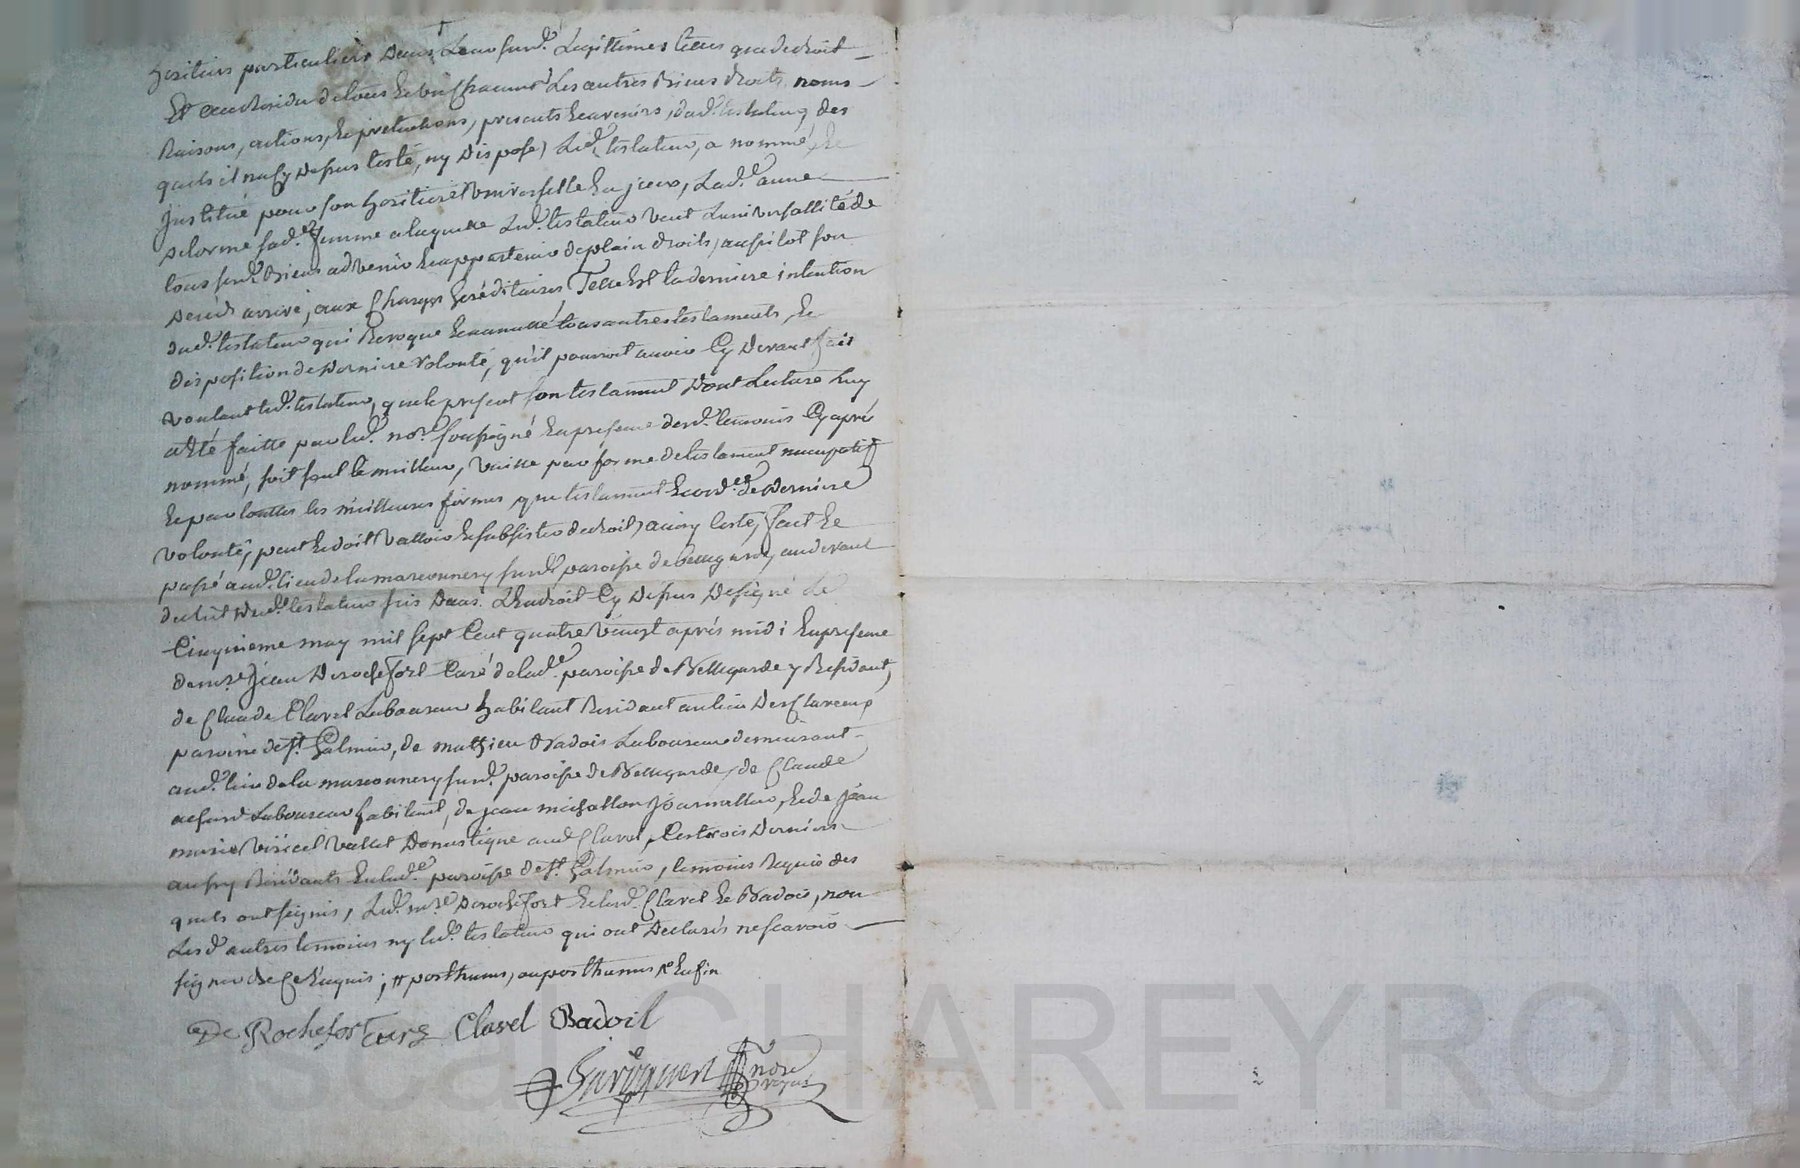 heritiers particuliers Dans Leursusd. Legittimes telles que de droit
Et au Residu de tous Et un chacuns Les autres Biens droits, noms
Raisons, actions, Et pretentions, presents Et avenirs, dud. testateur des
quels il na cy Depuis testé, ny Disposé, Led. testateur, a nommé, Et
Justitué pour son heritiere Universelle Lad. anne
Delorme sad.e femme a laquelle Led. testateur veut Luniversallité de
tous susd. Biens advenir Et appartenir de plain droits, aussitot son
Deced arrivé, aux Charges hereditaires Telle Est la derniere intention
dud. testateur qui Revoque Et annulle tous autres testaments, Et
disposition de Derniere volonté, qu'il pourroit avoir Cy Devant fait
voulant led. testateur, que le present son testament Dont Lecture Luy
a Eté faitte par led. no.re soussigné En presence desd. temoins Cy aprés
nommé, soit seul le meilleur, vaille par forme de testament nuncupatif
Et par touttes les meilleures formes que testament Et ord.ce de Derniere
volonté, peut Et doit valloir Et subsister de droit, ainsy testé, fait Et
passé aud. lieu de la marconnery susd. paroisse de bellegarde, au devant
du lict Dud. testateur sis Dans. Lendroit Cy Dessus Designé Le
Cinquieme may mil sept Cent quatre vingt aprés midi En presence
de m.re Jean Derochefort Curé de lad.e paroisse de Bellegarde y Residant,
de Claude Clavel Laboureur habitant Residant au lieu Des
paroisse de St. Galmier, de mathieu Badois Laboureur demeurant
aud. lieu de la marconnery susd. paroisse de Bellegarde, de Claude
Laboureur habitant, de jean michallon Journallier, Et de Jean
marie viricel vallet Domestique aud. Clavel, Les trois Derniers
aussy Residants En lad.e paroisse de St. Galmier, temoins Requis des
quels ont signés, Led. m.re Derochefort Et lesd. Clavel Et Badois, non
Lesd. autres temoins ny led. testateur qui ont Declarés ne scavoir
signer de Ce Enquis; # posthume, ou posthumes
De Rochefort Curé Clavel Badoil
no.re royal
CHAREYRON